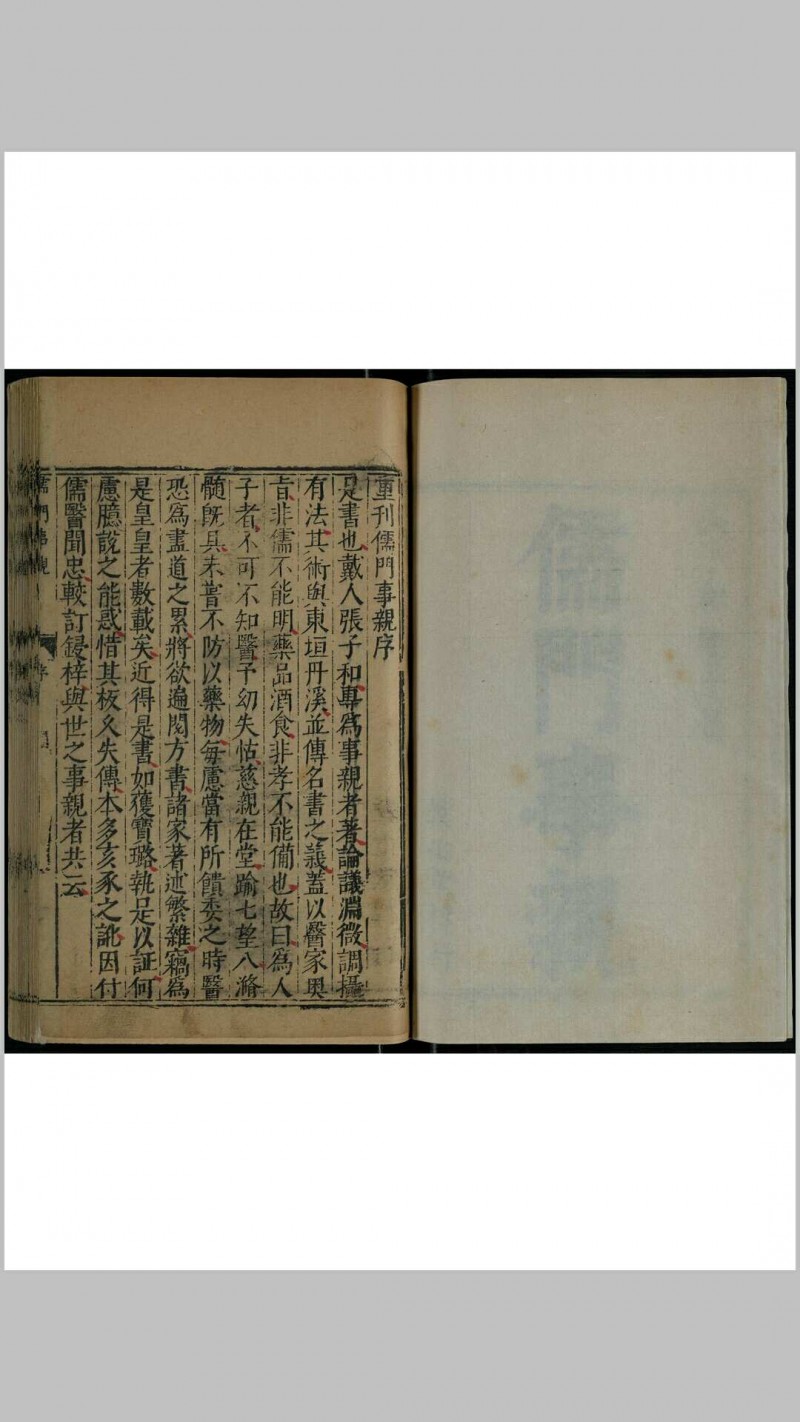 重刊儒門事親序
是書也戴人張子和專爲事親者著論議淵微調攝
有法其術與東垣丹溪並傳名書之義蓋以醫家奧
旨非儒不能明藥品酒食非孝不能備也故曰爲人
子者不可不知醫予幼失怙慈親在堂踰七望八滫
髓旣具未嘗不防以藥物每慮當有所饋委之時醫
恐爲盡道之累將欲遍閱方書諸家著述繁雜竊爲
是皇皇者數載矣近得是書如獲寶璐執是以証何
慮臆說之能惑惜其板久失傳本多亥豕之訛因付
儒醫聞忠較訂鋟梓與世之事親者共云
儒門事親
序